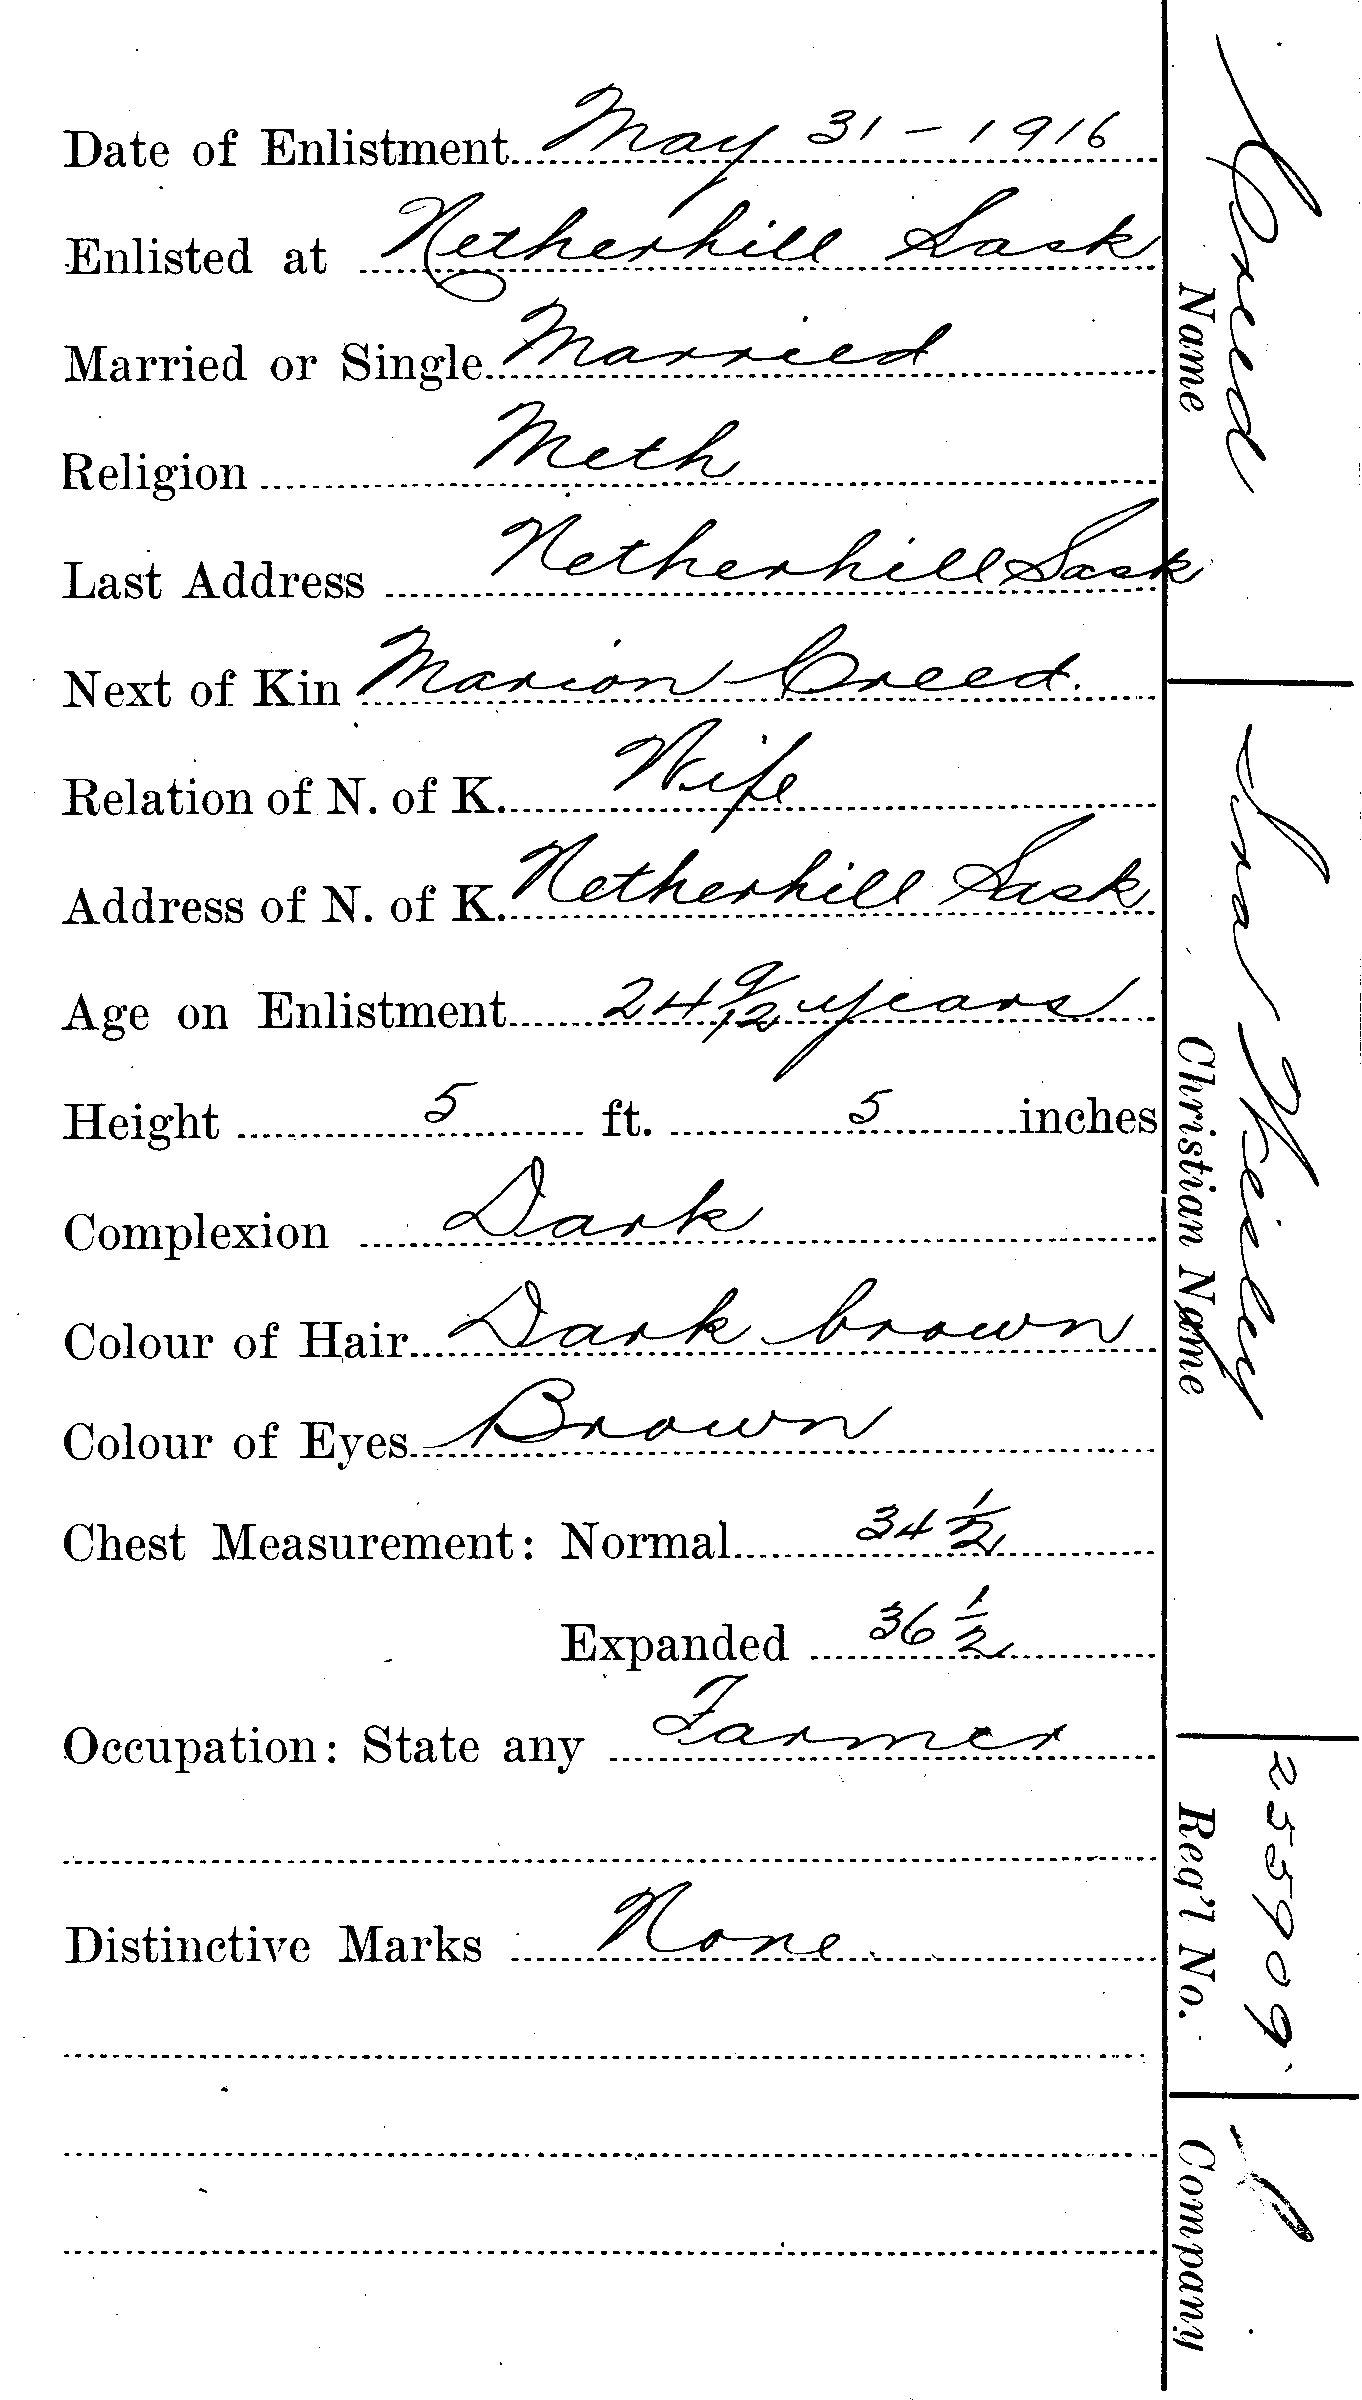 Date of Enlistment May 31 - 1916
Enlisted at Netherhill Sask
Married or Single Married
Religion Meth
Last Address Netherhill Sask
Next of Kin Marion Creed.
Relation of N. of K. Wife
Address of N. of K. Netherhill Sask
Age on Enlistment 24 9/12 years
Height 5 ft. 5 inches
Complexion Dark
Colour of Hair Dark brown
Colour of Eyes Brown
Chest Measurement: Normal 34 1/2
Expanded 36 1/2
Occupation: State any Farmer
Distinctive Marks None
Creed
Name
Ira Weiley
Christian Name
255909
Reg'l No.
Company